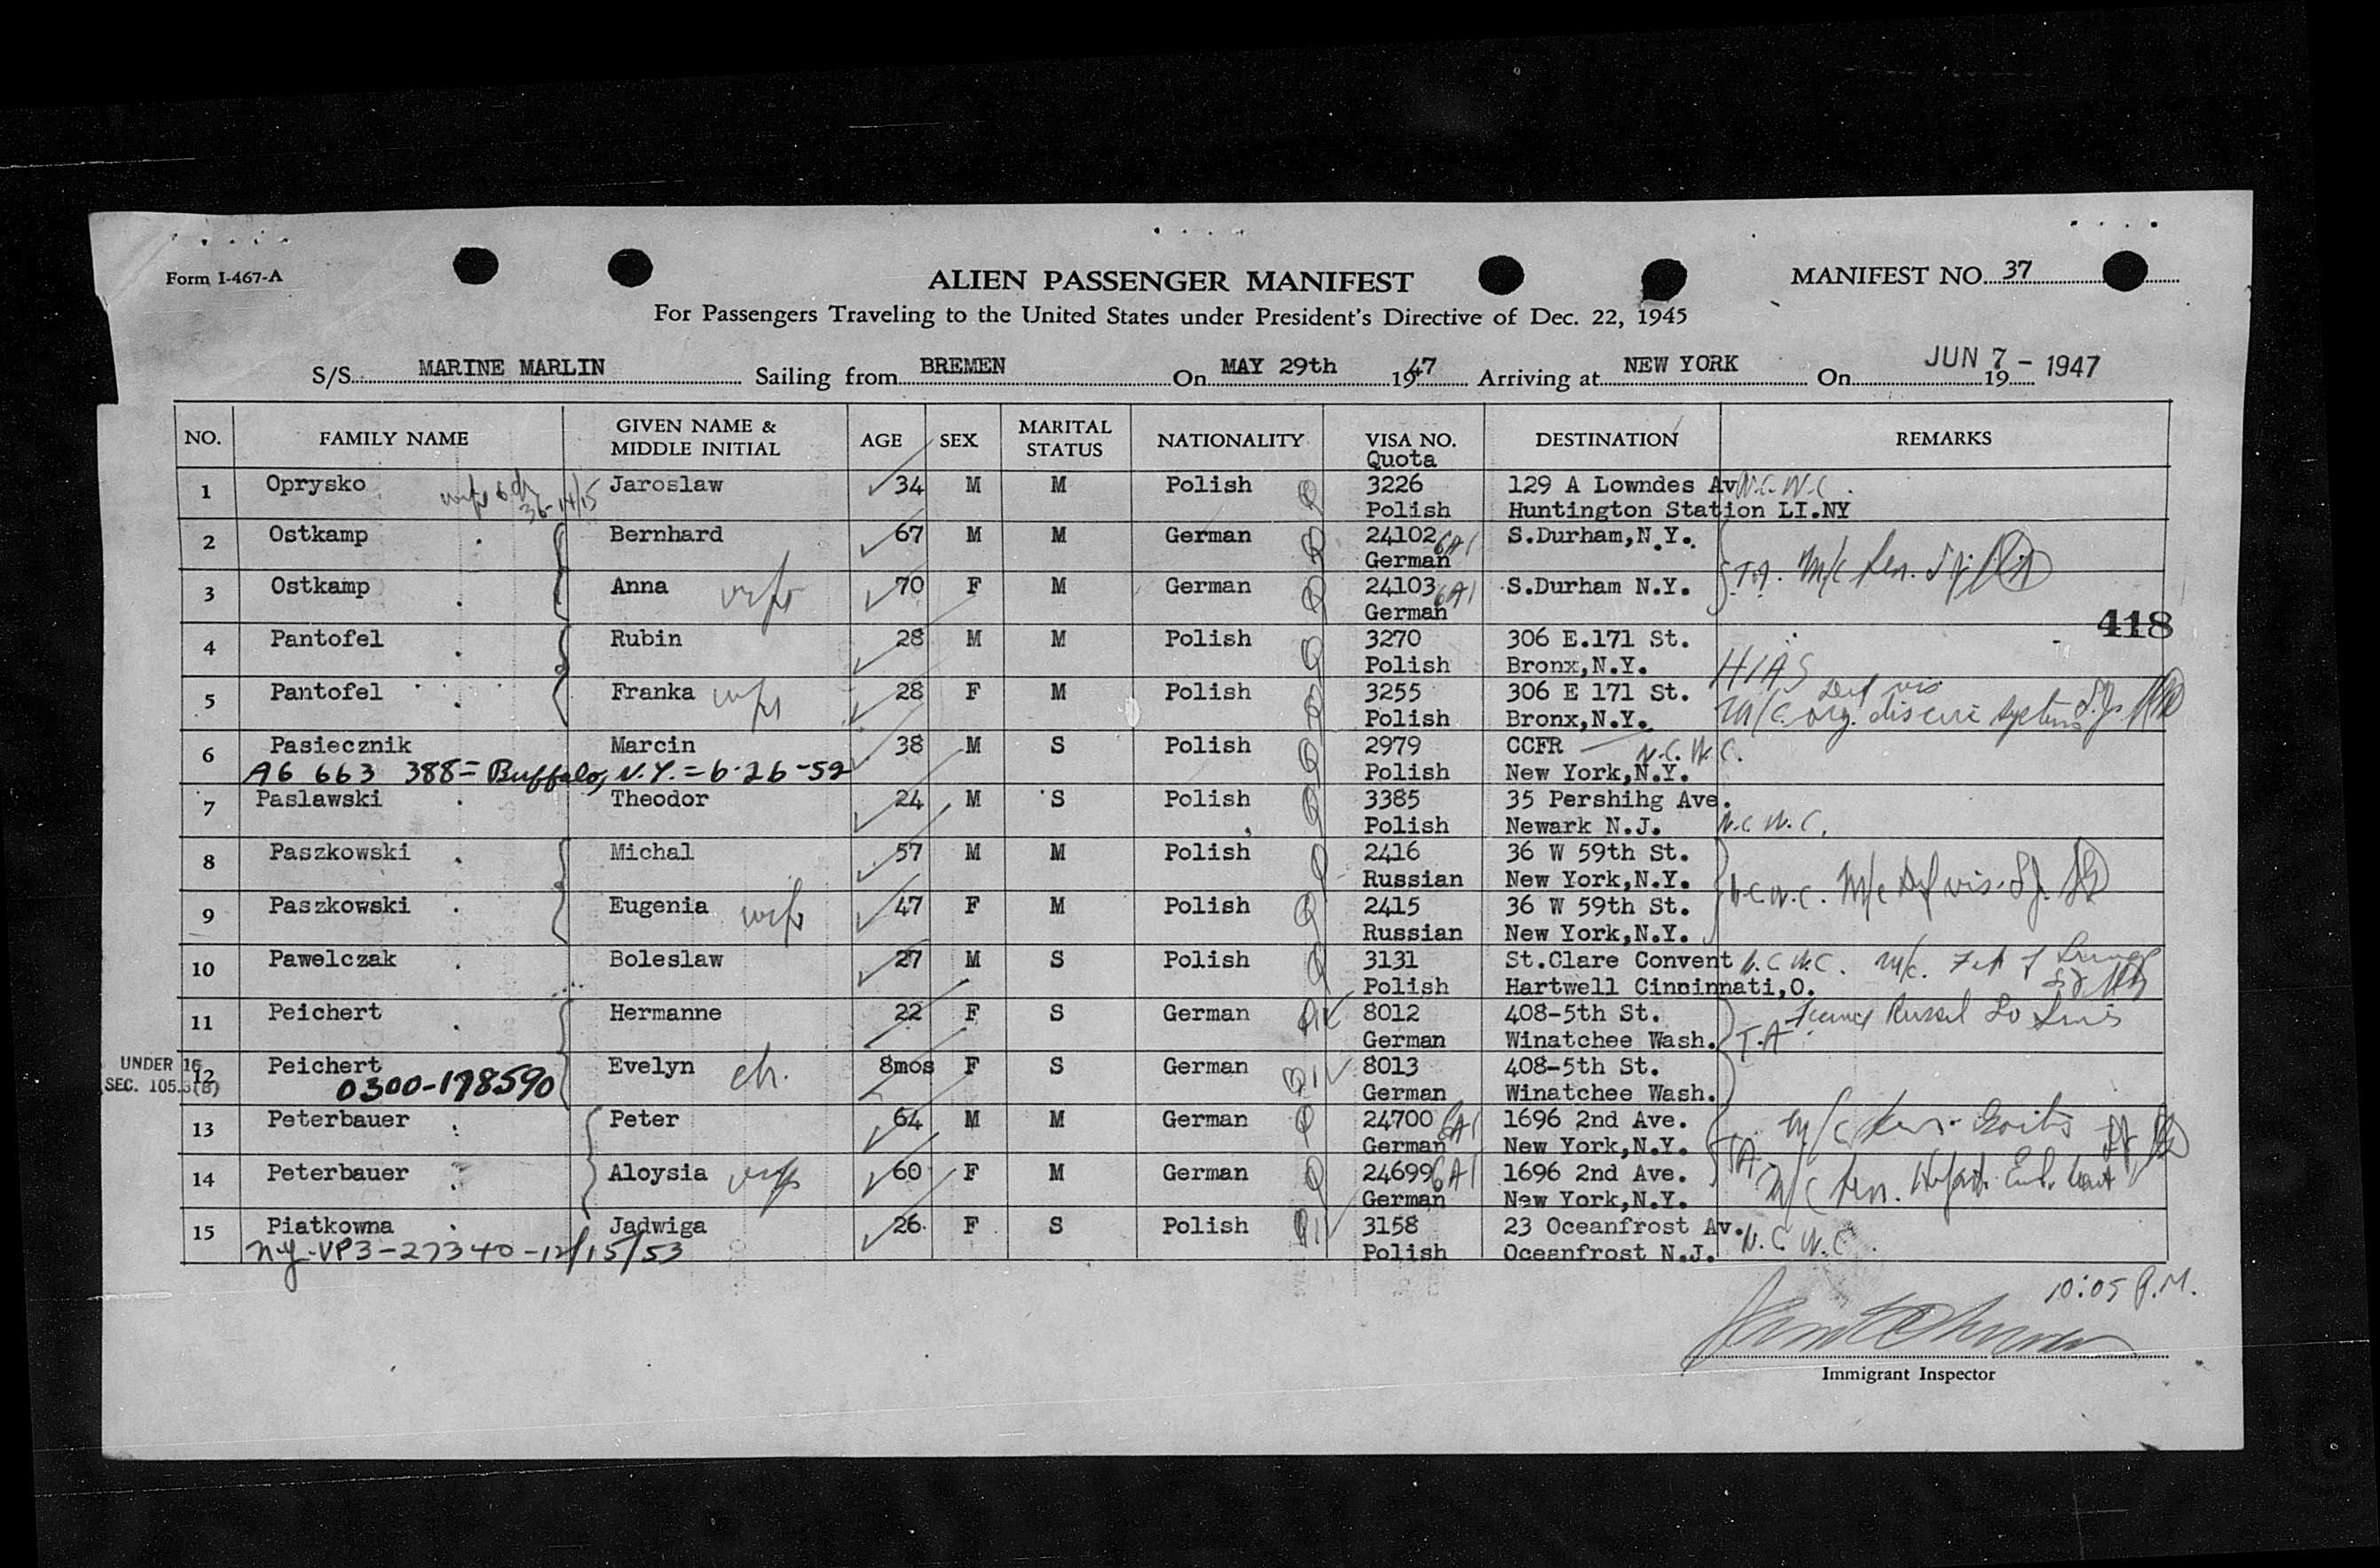 Form I-467-A
ALIEN PASSENGER MANIFEST
MANIFEST NO. 37
For Passengers Traveling to the United States under President's Directive of Dec. 22, 1945
S/S MARINE MARLIN Sailing from BREMEN On MAY 29th 1947 Arriving at NEW YORK On JUN 7 - 1947 19
NO. FAMILY NAME GIVEN NAME & MIDDLE INITIAL AGE SEX MARITAL STATUS NATIONALITY VISA NO. Quota DESTINATION REMARKS
1 Oprysko Jaroslaw 34 M M Polish Q 3226 129 A Lowndes Av N.C.W.C.
36-14/15 Polish Huntington Station LI.NY
2 Ostkamp Bernhard 67 M M German Q 24102 6A1 S.Durham,N.Y.
German
3 Ostkamp Anna wife 70 F M German Q 24103 6A1 S.Durham N.Y. T.A. M/c Sen.
German
418
4 Pantofel Rubin 28 M M Polish Q 3270 306 E.171 St.
Polish Bronx,N.Y. HIAS
5 Pantofel Franka wife 28 F M Polish Q 3255 306 E 171 St.
Polish Bronx,N.Y. M/c. Def vis
6 Pasiecznik Marcin 38 M S Polish Q 2979 CCFR N.C.W.C.
A6 663 388 = Buffalo, N.Y. = 6-26-52 Polish New York,N.Y.
7 Paslawski Theodor 24 M S Polish Q 3385 35 Pershihg Ave.
Polish Newark N.J. N.C.W.C.
8 Paszkowski Michal 57 M M Polish Q 2416 36 W 59th St.
Russian New York,N.Y. N.C.W.C. M/c Def vis.
9 Paszkowski Eugenia wife 47 F M Polish Q 2415 36 W 59th St.
Russian New York,N.Y.
10 Pawelczak Boleslaw 27 M S Polish Q 3131 St.Clare Convent N.C.W.C. M/c.
Polish Hartwell Cincinnati,O.
11 Peichert Hermanne 22 F S German QIV 8012 408-5th St.
German Winatchee Wash. T.A.
UNDER 16 SEC. 105.3(b)
12 Peichert Evelyn ch. 8mos F S German QIV 8013 408-5th St.
0300-198590 German Winatchee Wash.
13 Peterbauer Peter 64 M M German Q 24700 6A1 1696 2nd Ave. M/c Sen.
German New York,N.Y. TA.
14 Peterbauer Aloysia wife 60 F M German Q 24699 6A1 1696 2nd Ave. M/c Sen.
German New York,N.Y.
15 Piatkowna Jadwiga 26 F S Polish QIV 3158 23 Oceanfrost Av. N.C.W.C.
NY-VP3-27340-12/15/53 Polish Oceanfrost N.J.
10:05 P.M.
Immigrant Inspector